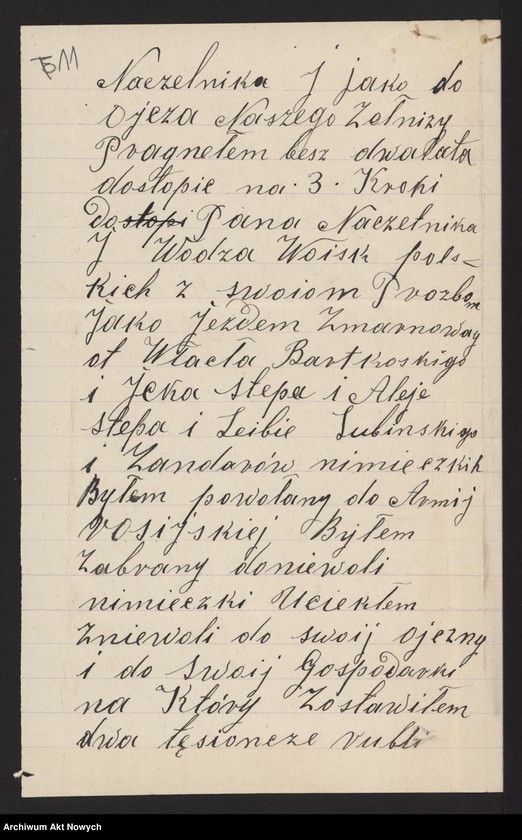 Naczelnika J jako do
Ojcza Naszego Zołnizy
Pragnełem besz dwa lata
dostopie na . 3 . Kroki
Dostopi Pana Naczelnika
J Wodza Woisk pols-
kich z swoiom Prozbom
Jako Jezdem Zmarnowany
ot Włacła Bartkoskigo
i Jcka Stepa i Aleje
Stepa i Leibie Lubinskigo
i Zandarów nimieczkih
Byłem powołany do Armij
rosijskiej Byłem
Zabrany doniewoli
nimieczki Uciekłem
Zniewoli do swoij ojczny
i do swoij Gospodarki
na Który Zostawiłem
dwa tysioncze rubli
Archiwum Akt Nowych